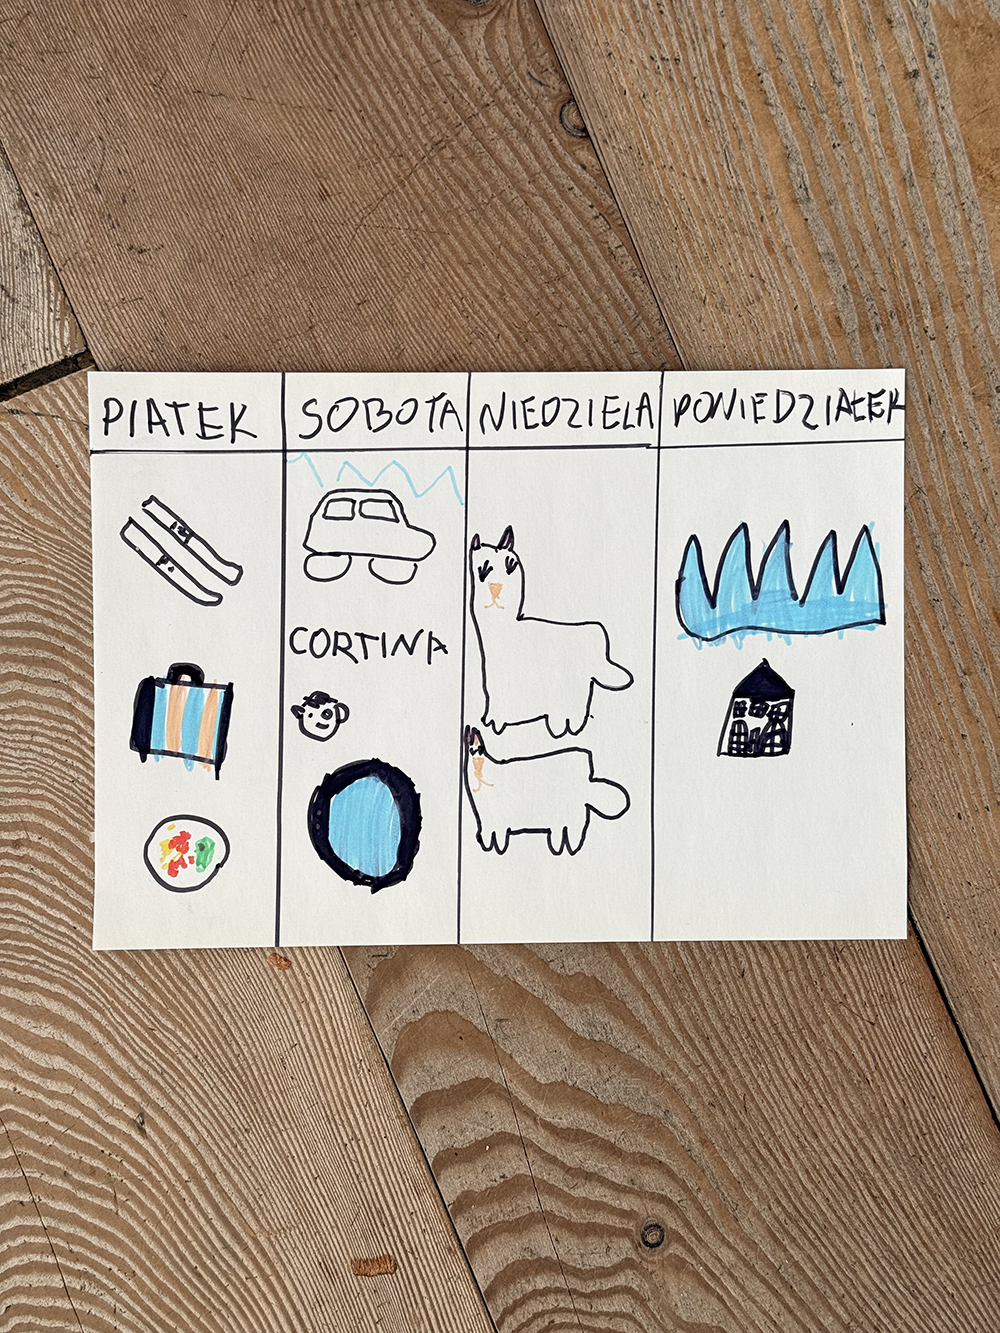 PIATEK
SOBOTA
NIEDZIELA
PONIEDZIAŁEK
CORTINA